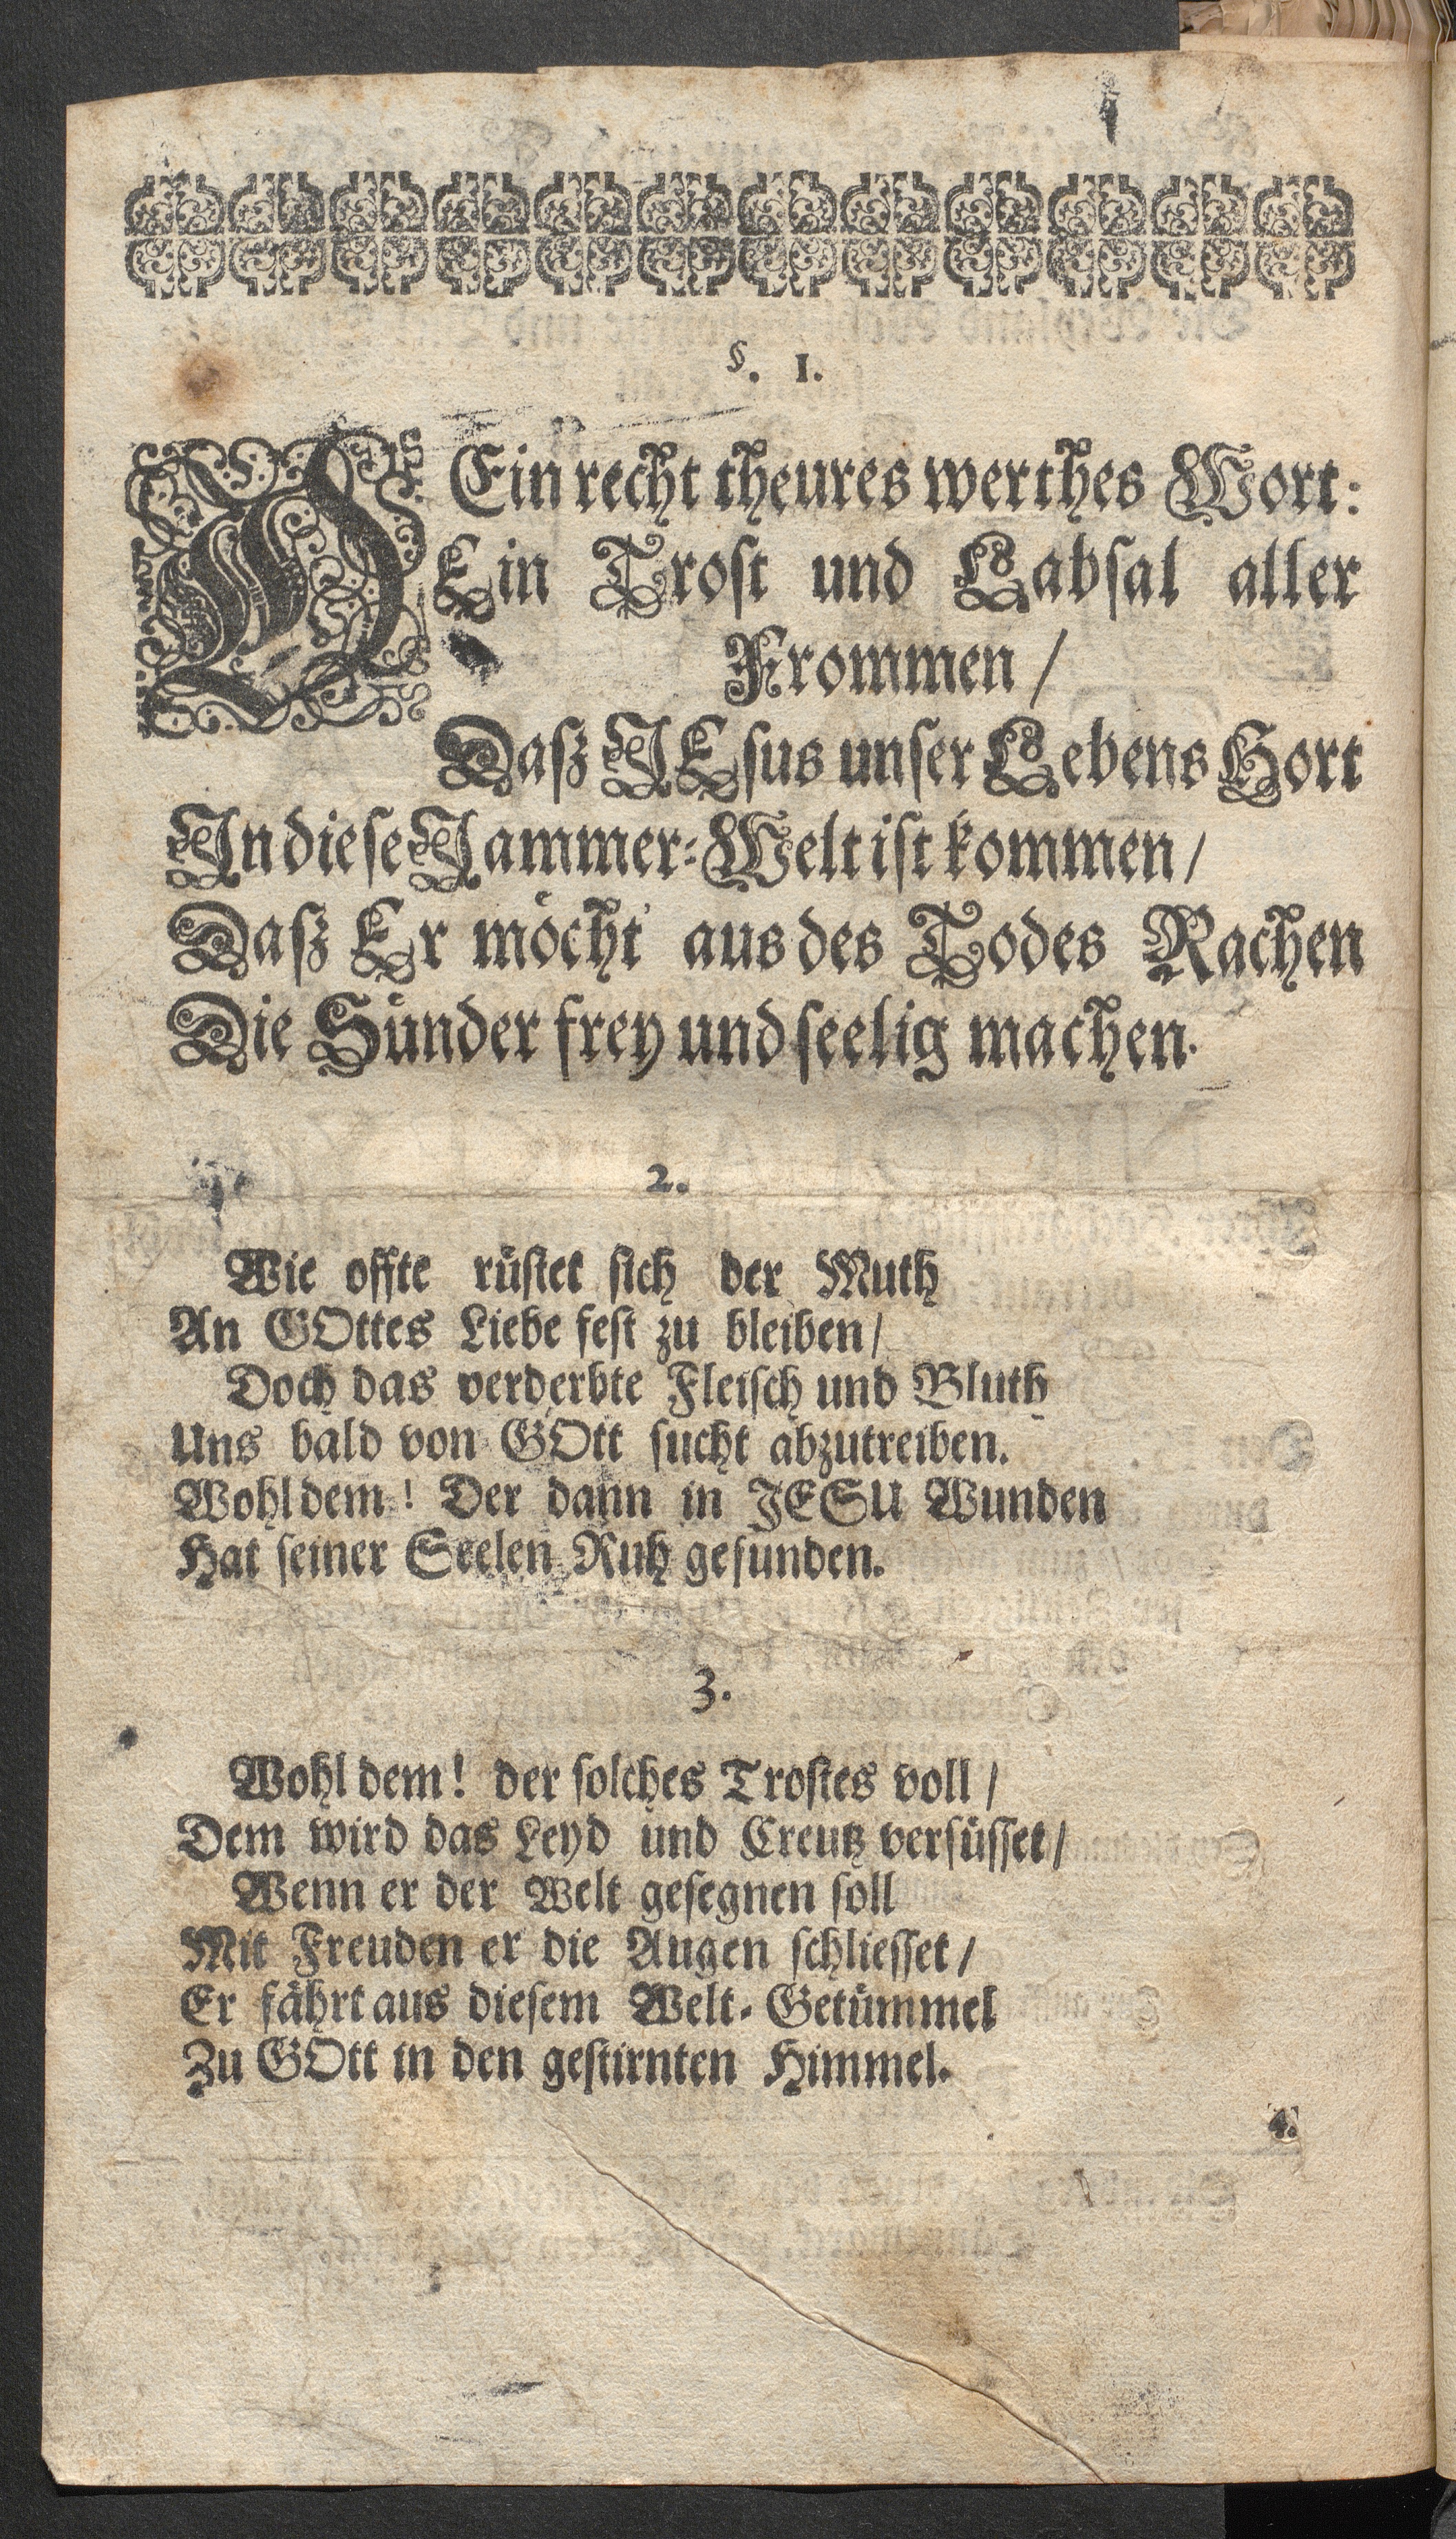 §. 1.
O Ein recht theures werthes Wort:
Ein Troſt und Labſal aller
Frommen /
Daß JEſus unſer Lebens Hort
In dieſe Jammer-Welt iſt kommen /
Daß Er möcht' aus des Todes Rachen
Die Sünder frey und ſeelig machen.
2.
Wie offte rüſtet ſich der Muth
An GOttes Liebe feſt zu bleiben /
Doch das verderbte Fleiſch und Bluth
Uns bald von GOtt ſucht abzutreiben.
Wohl dem! Der dann in JESU Wunden
Hat ſeiner Seelen Ruh gefunden.
3.
Wohl dem! der ſolches Troſtes voll /
Dem wird das Leyd und Creutz verſüſſet /
Wenn er der Welt geſegnen ſoll
Mit Freuden er die Augen ſchlieſſet /
Er fährt aus dieſem Welt-Getümmel
Zu GOtt in den geſtirnten Himmel.
4.